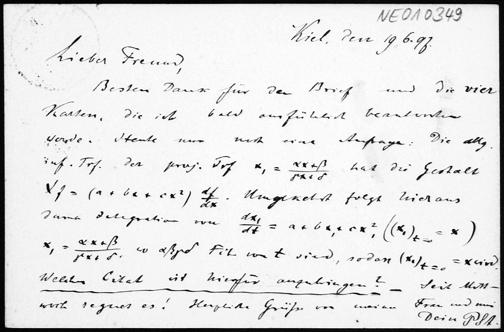 NE010349
Kiel, den 19.6.97.
Lieber Freund,
Besten Dank für den Brief und die vier
Karten, die ich bald ausführlich beantworten
werde. Heute nur noch eine Anfrage: Die allg.
inf. Trf. der proj. Trf x₁ = (αx+β)/(γx+δ) hat die Gestalt
Xf = (a + bx + cx²) df/dx. Umgekehrt folgt hieraus
durch Integration von dx₁/dt = a + bx₁ + cx₁², ((x₁)t=0 = x)
x₁ = (αx+β)/(γx+δ), wo αβγδ Fkt von t sind, sodass (x₁)t=0 = x wird
Welches Citat ist hierfür anzubringen? – Seit Mitt-
woch regnet es! Herzliche Grüsse von meiner Frau und von
Dein P.St.